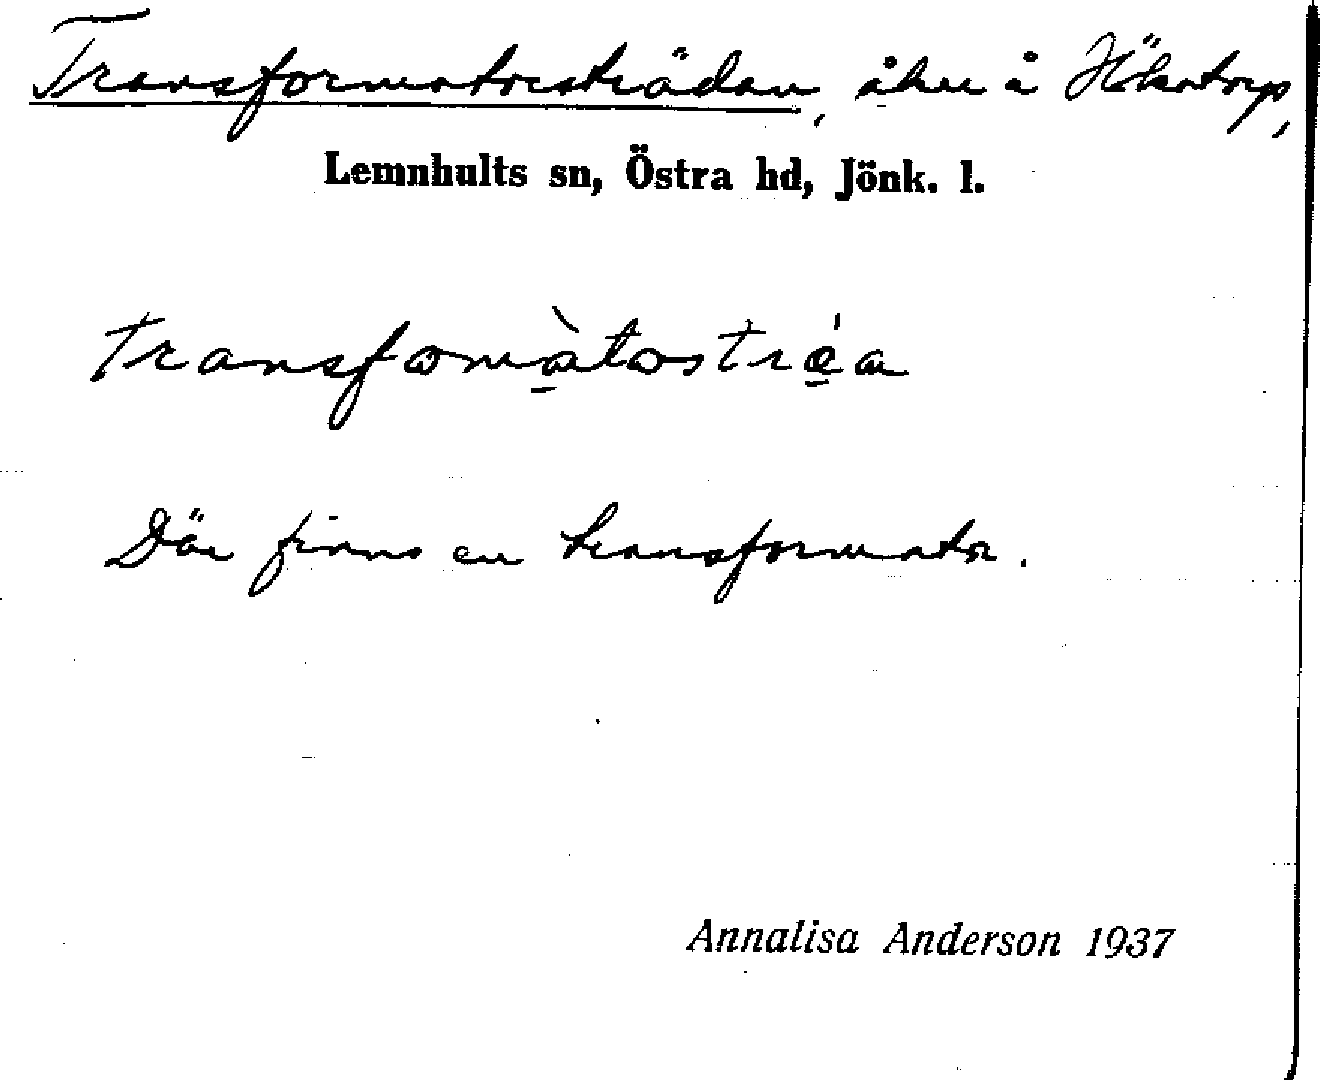 Transformatorsträdan, åker å Hökatorp,
Lemnhults sn, Östra hd, Jönk. l.
transfomàtostréa
Där finns en transformator.
Annalisa Anderson 1937